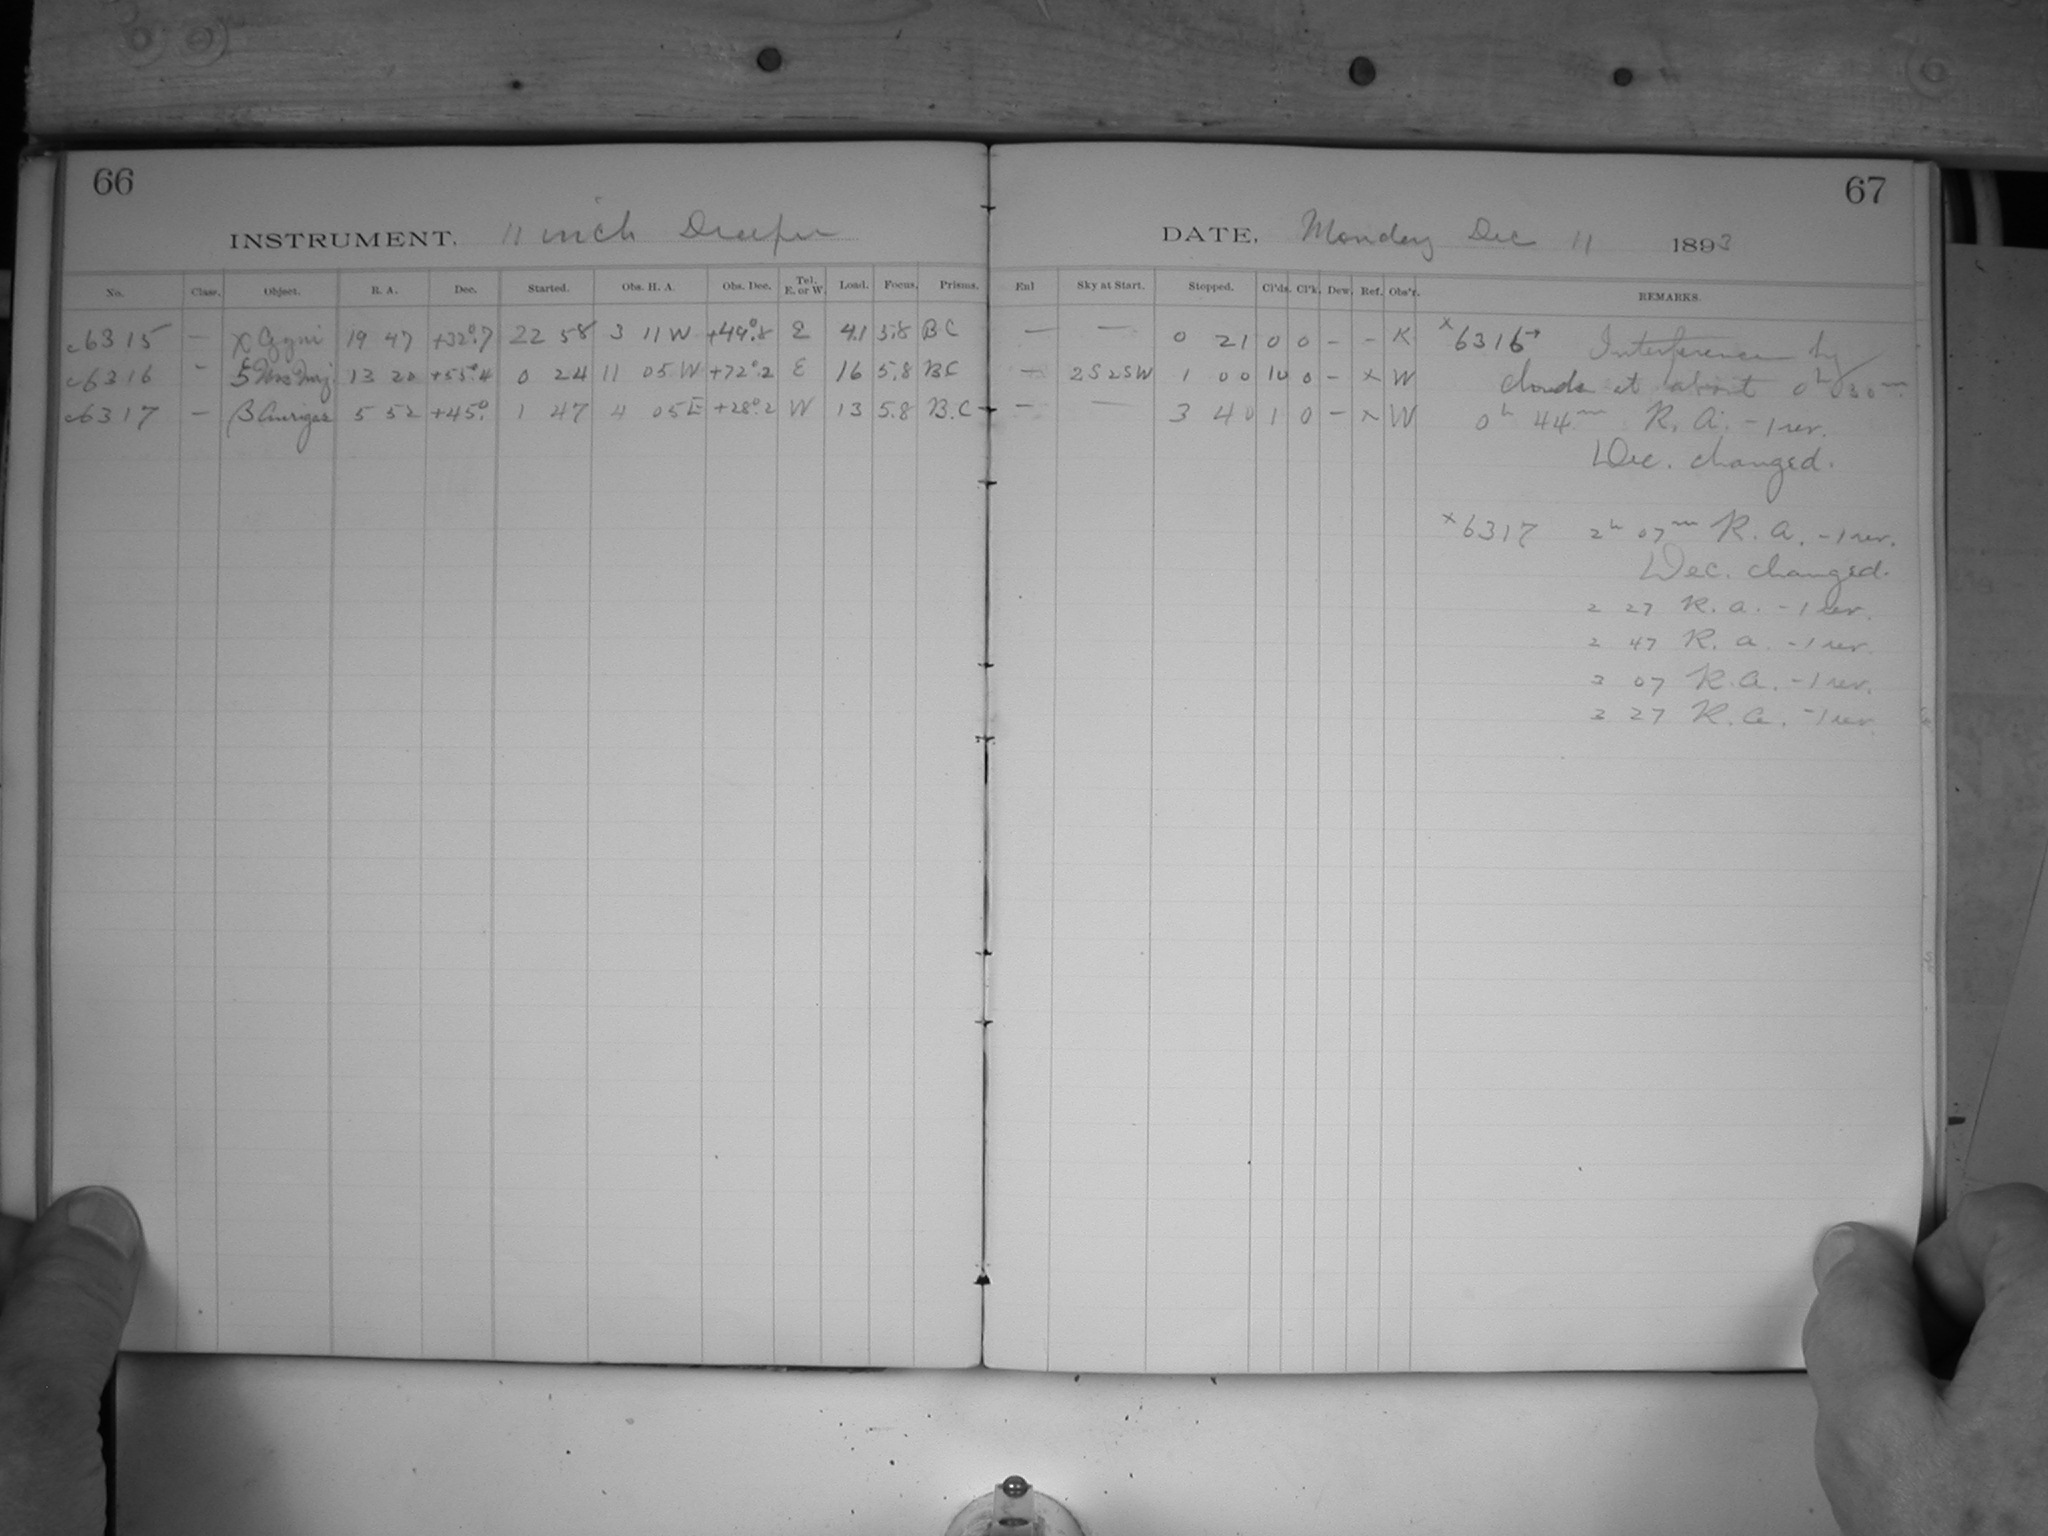 66
INSTRUMENT. 11 inch Draper
No. Class. Object. R. A. Dec. Started. Obs. H. A. Obs. Dec. Tel. E. or W. Load. Focus. Prisms.
c6315 — χ Cygni 19 47 +32°.7 22 58 3 11 W +49°.8 E 41 5.8 BC
c6316 - ζ Urs Maj. 13 20 +55°.4 0 24 11 05 W +72°.2 E 16 5.8 BC
c6317 — β Aurigae 5 52 +45° 1 47 4 05 E +28°.2 W 13 5.8 B.C
67
DATE, Monday Dec 11 1893
Enl Sky at Start. Stopped. Cl'ds. Cl'k. Dew. Ref. Obs'r. REMARKS.
— — 0 21 0 0 - - K
— 2S 2SW 1 00 10 0 - x W
— — 3 40 1 0 - x W
x6316 Interference by
clouds at about 0h 30m.
0h 44m R. A. -1 rev.
Dec. changed.
x6317 2h 07m R. A. -1 rev.
Dec. changed.
2 27 R. a. -1 rev.
2 47 R. a. -1 rev.
3 07 R. A. -1 rev.
3 27 R. A. -1 rev.